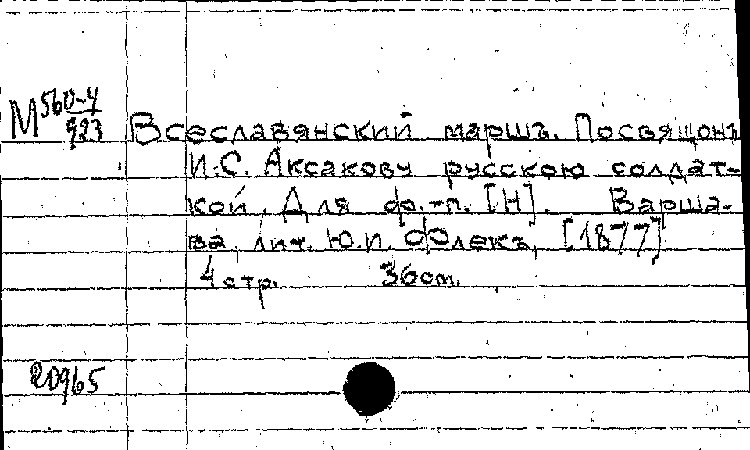 М 560-4
923
Всеславянский маршъ. Посвящонъ
И.С. Аксакову русскою солдат-
кой. Для ф.-п. [Н]. Варша-
ва, лит. Ю.И. Флекъ, [1877]
4 стр. 36 cm.
20965